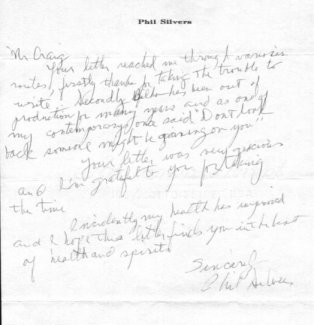 Phil Silvers
Mr Craig
Your letter reached me through various
routes, firstly thanks for taking the trouble to
write. Secondly has been out of
production for many years and as one of
my contemporarys once said "Don't look
back someone might be gaining on you"
Your letter was very gracious
and I'm grateful to you for taking
the time
Incidently my health has improved
and I hope this letter finds you in the best
of health and spirits
Sincerely
Phil Silvers